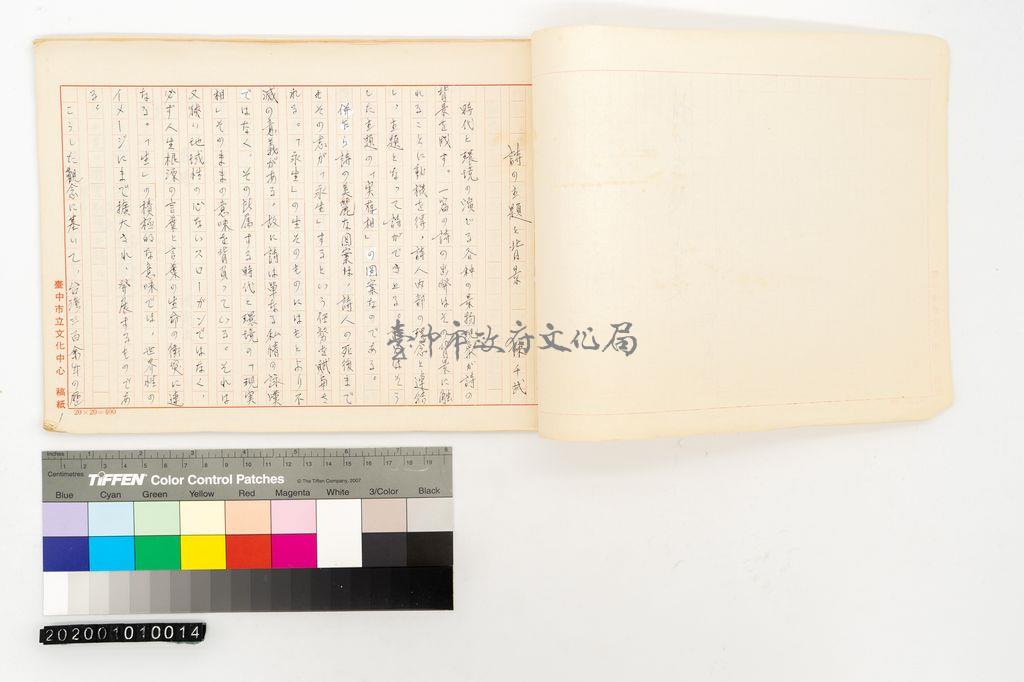 詩の主題と背景
陳千武
時代と環境の演でる各種の景物現象が詩の
背景を成す。一篇の詩の出発はその背景に触
れることに動機を得、詩人内部の理念と連結
し、主題となって詩ができ上る。詩はそう
した主題の「実存相」の図案なのである。
併乍ら詩の美麗な図案は、詩人の死後まで
もその志が「永生」するという任務を賦与さ
れる。「永生」の生そのものにはもとより不
滅の意義がある、故に詩は単なる私情の詠嘆
ではなく、その所属する時代と環境の「現実
相」そのままの意味を背負っている。それは
又狭い地域性の心ないスローガンではなく、
必ず人生根源の言葉と言葉の生命の衝突に連
なる。「生」の積極的な意味では、世界性の
イメージにまで擴大され、發展するものであ
る。
こうした觀念に基いて、台湾三百余年の歴
臺中市立文化中心 稿紙
20×20=400
1
臺中市政府文化局
Inches 1 2 3 4 5 6 7 8
1 2 3 4 5 6 7 8 9 10 11 12 13 14 15 16 17 18 19
Centimetres
TIFFEN Color Control Patches © The Tiffen Company, 2007
Blue Cyan Green Yellow Red Magenta White 3/Color Black
202001010014